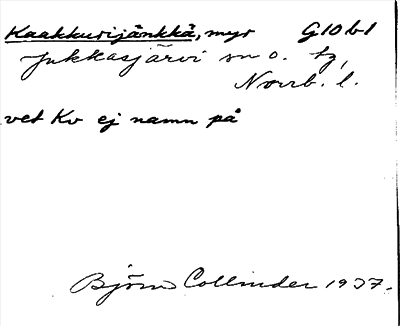 Kaakkurijänkkä, myr G10b1
Jukkasjärvi sn o. tg,
Norrb. l.
vet Kv ej namn på
Björn Collinder 1937.